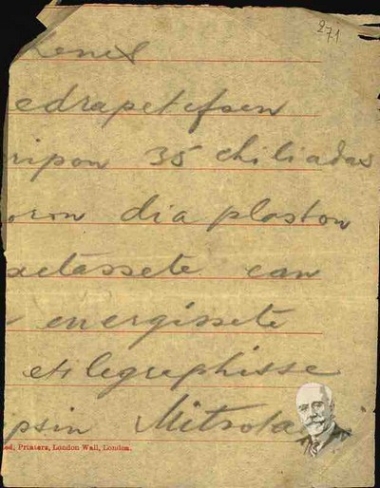 271
edrapetefsen
ripon 35 chiliadas
dia plaston
xetassete ean
energissete
etilegraphisse
psin Mitsota
ed, Printers, London Wall, London.